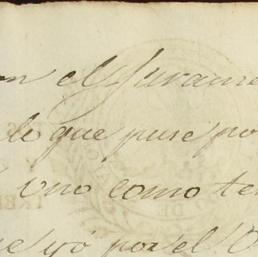 en el Jurame
lo que puse po
uno como te
que yó por el